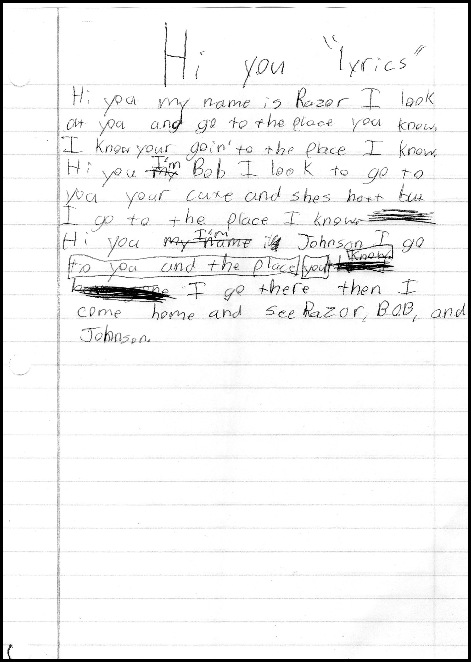 Hi you "lyrics"
Hi you my name is Razor I look
at you and go to the place you know,
I know your goin' to the place I know.
Hi you I'm Bob I look to go to
you your cute and shes hott but
I go to the place I know.
Hi you I'm Johnson I go
to you and the place you know
I go there then I
come home and see Razor, BOB, and
Johnson.